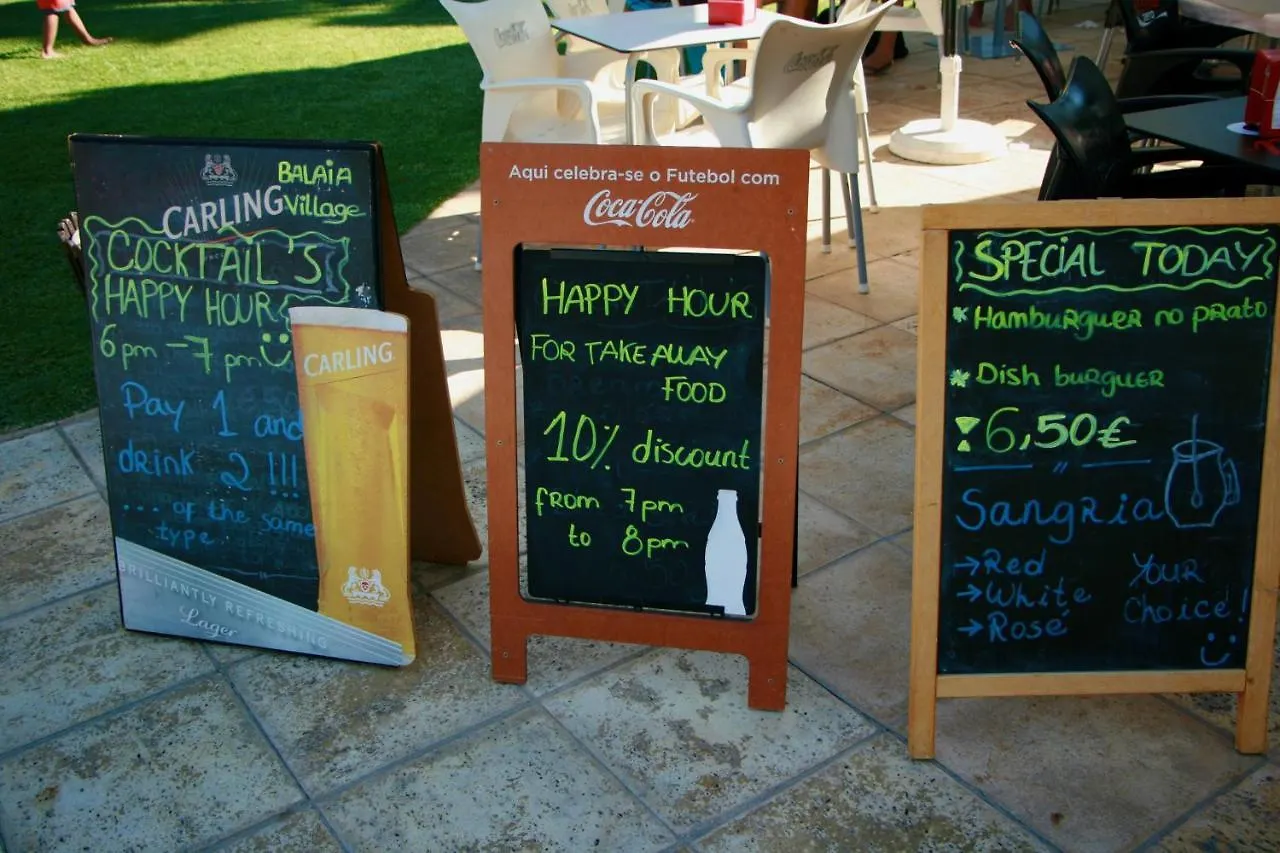 CARLING
BALAIA
Village
COCKTAIL'S
HAPPY HOUR
6pm - 7pm
Pay 1 and
drink 2 !!!
... of the same
type
CARLING
BRILLIANTLY REFRESHING
Lager
Aqui celebra-se o Futebol com
Coca-Cola
HAPPY HOUR
FOR TAKE AWAY
FOOD
10% discount
from 7pm
to 8pm
SPECIAL TODAY
* Hamburguer no prato
* Dish burguer
6,50€
"
Sangria
→ Red
→ White
→ Rosé
Your
Choice!